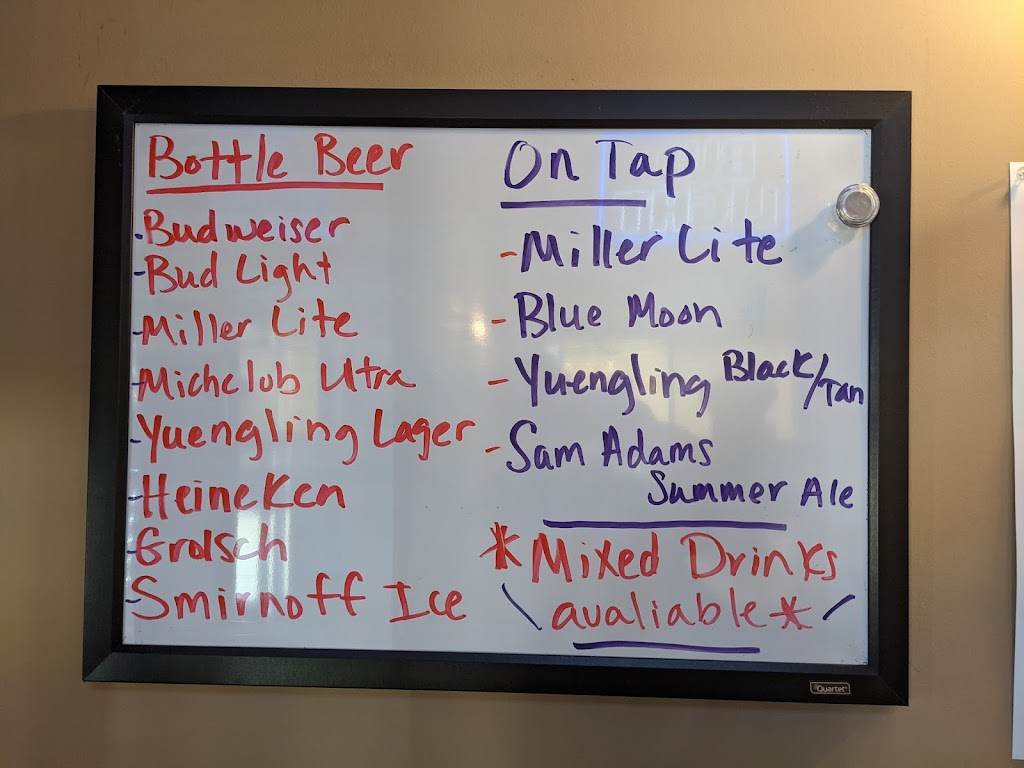 Bottle Beer
-Budweiser
-Bud Light
-Miller Lite
-Michclob Utra
-Yuengling Lager
-Heineken
-Grolsch
-Smirnoff Ice
On Tap
-Miller Lite
-Blue Moon
-Yuengling Black/Tan
-Sam Adams
Summer Ale
*Mixed Drinks
\ avaliable* /
Quartet